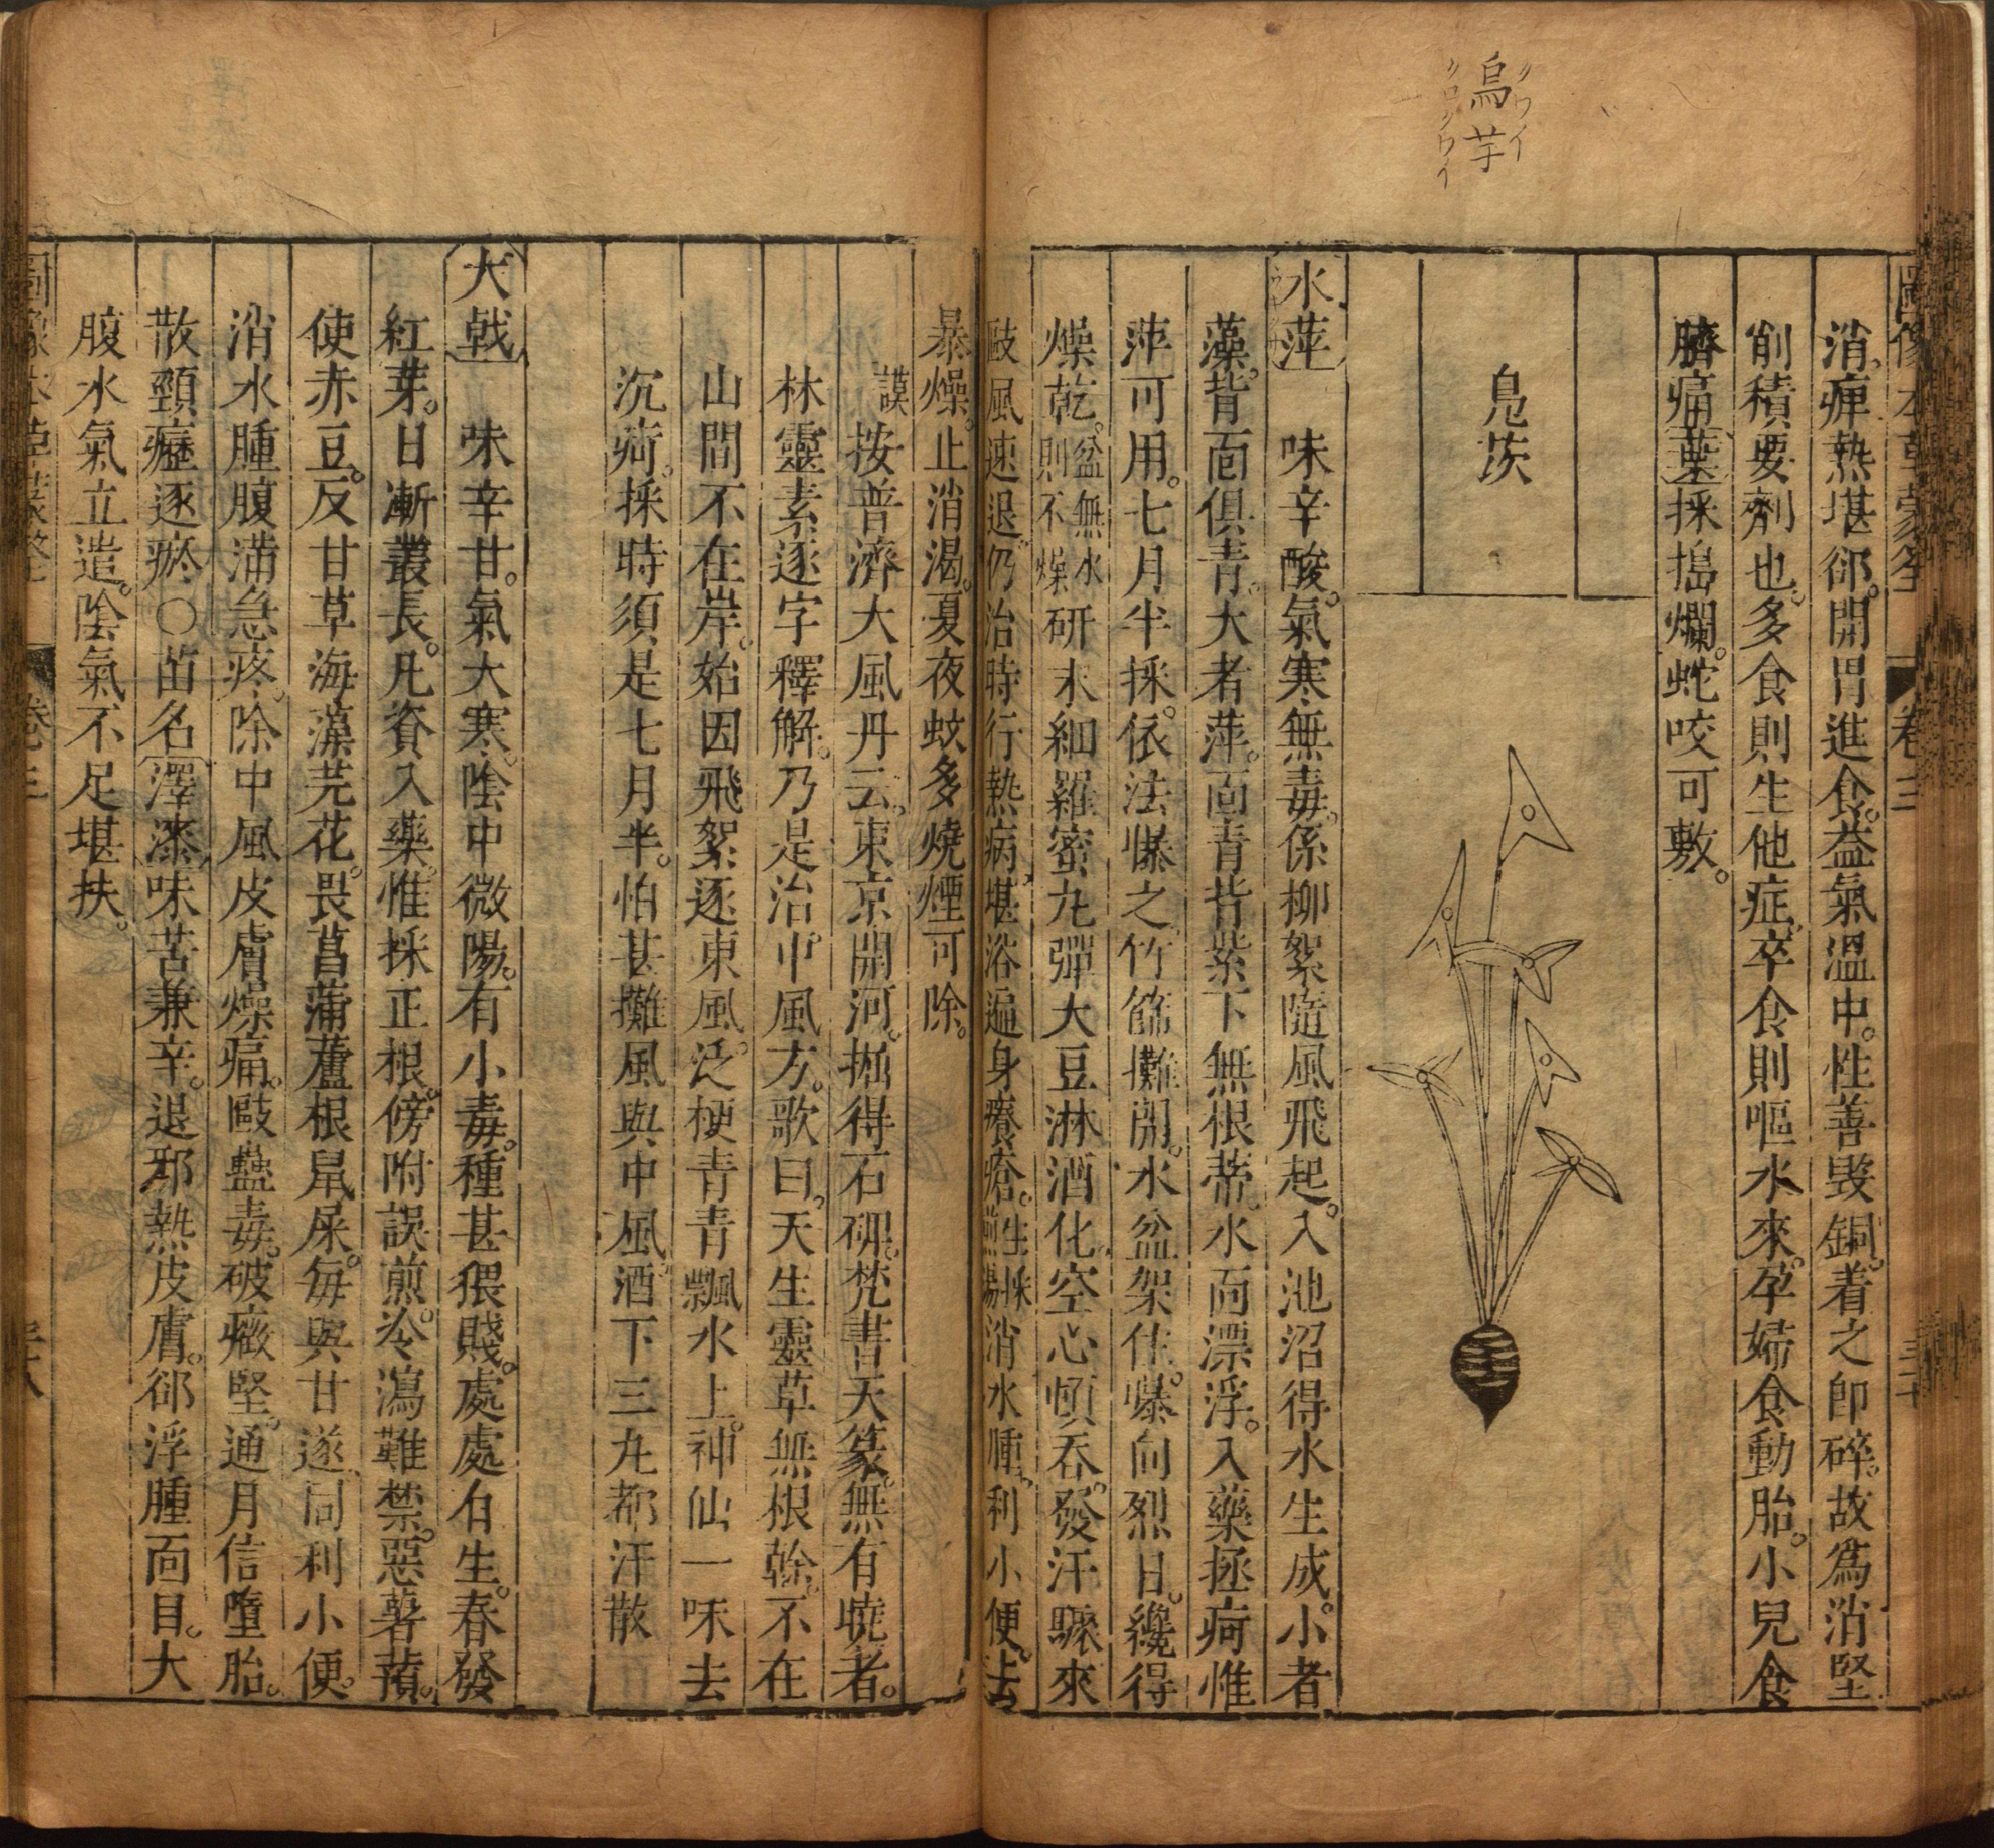 烏芋
クワイ
クロクワイ
圖像本草蒙筌
卷三
消痺熱堪郤開胃進食益氣溫中性善毀銅着之即碎故爲消堅
削積要劑也多食則生他症卒食則嘔水來孕婦食動胎小兒食
臍痛葉採搗爛蛇咬可敷
鳧茨
水萍 味辛酸氣寒無毒係柳絮隨風飛起入池沼得水生成小者
藻背面俱青大者萍面青背紫下無根蒂水面漂浮入藥拯疴惟
萍可用七月半採依法㬥之竹篩攤開水盆架住㬥向烈日纔得
燥乾盆無水則不燥研末細羅蜜丸彈大豆淋酒化空心頓吞發汗驟來
敺風速退仍治時行熱病堪浴遍身癢瘡生採煎湯消水腫利小便法
暴燥止消渴夏夜蚊多燒煙可除
謨按普濟大風丹云東京開河掘得石碑梵書天篆無有曉者
林靈素逐字釋解乃是治中風方歌曰天生靈草無根幹不在
山間不在岸始因飛絮逐東風泛梗青青飄水上神仙一味去
沉疴採時須是七月半怕甚攤風與中風酒下三丸都汗散
大戟 味辛甘氣大寒陰中微陽有小毒種甚猥賤處處有生春發
紅芽日漸叢長凡資入藥惟採正根傍附誤煎冷瀉難禁惡薯蕷
使赤豆反甘草海藻芫花畏菖蒲蘆根鼠屎每與甘遂同利小便
消水腫腹滿急疼除中風皮膚燥痛敺蠱毒破癥堅通月信墮胎
散頸癧逐瘀○苗名澤漆味苦兼辛退邪熱皮膚郤浮腫面目大
腹水氣立造陰氣不足堪扶
卷三